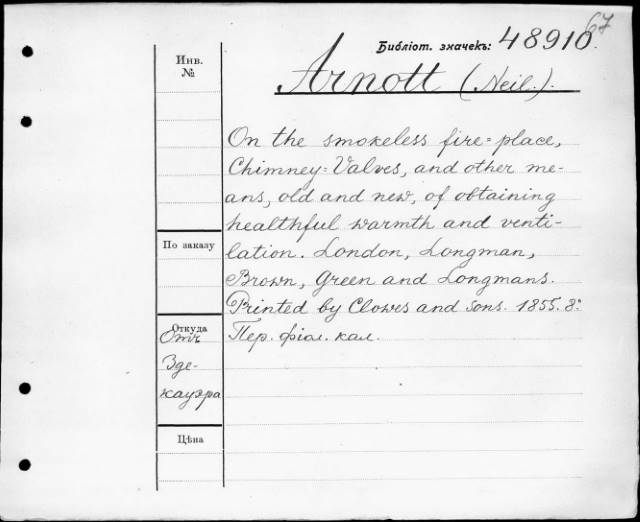 67
Библіот. значекъ: 48910.
Инв.
№
Arnott (Neil.).
On the smokeless fire=place,
Chimney=Valves, and other me-
ans, old and new, of obtaining
healthful warmth and venti-
lation. London, Longman,
Brown, Green and Longmans.
Printed by Clowes and Sons. 1855. 8º
Пер. фіол. кал.
По заказу
Откуда
Отъ
Зде-
кауэра
Цѣна